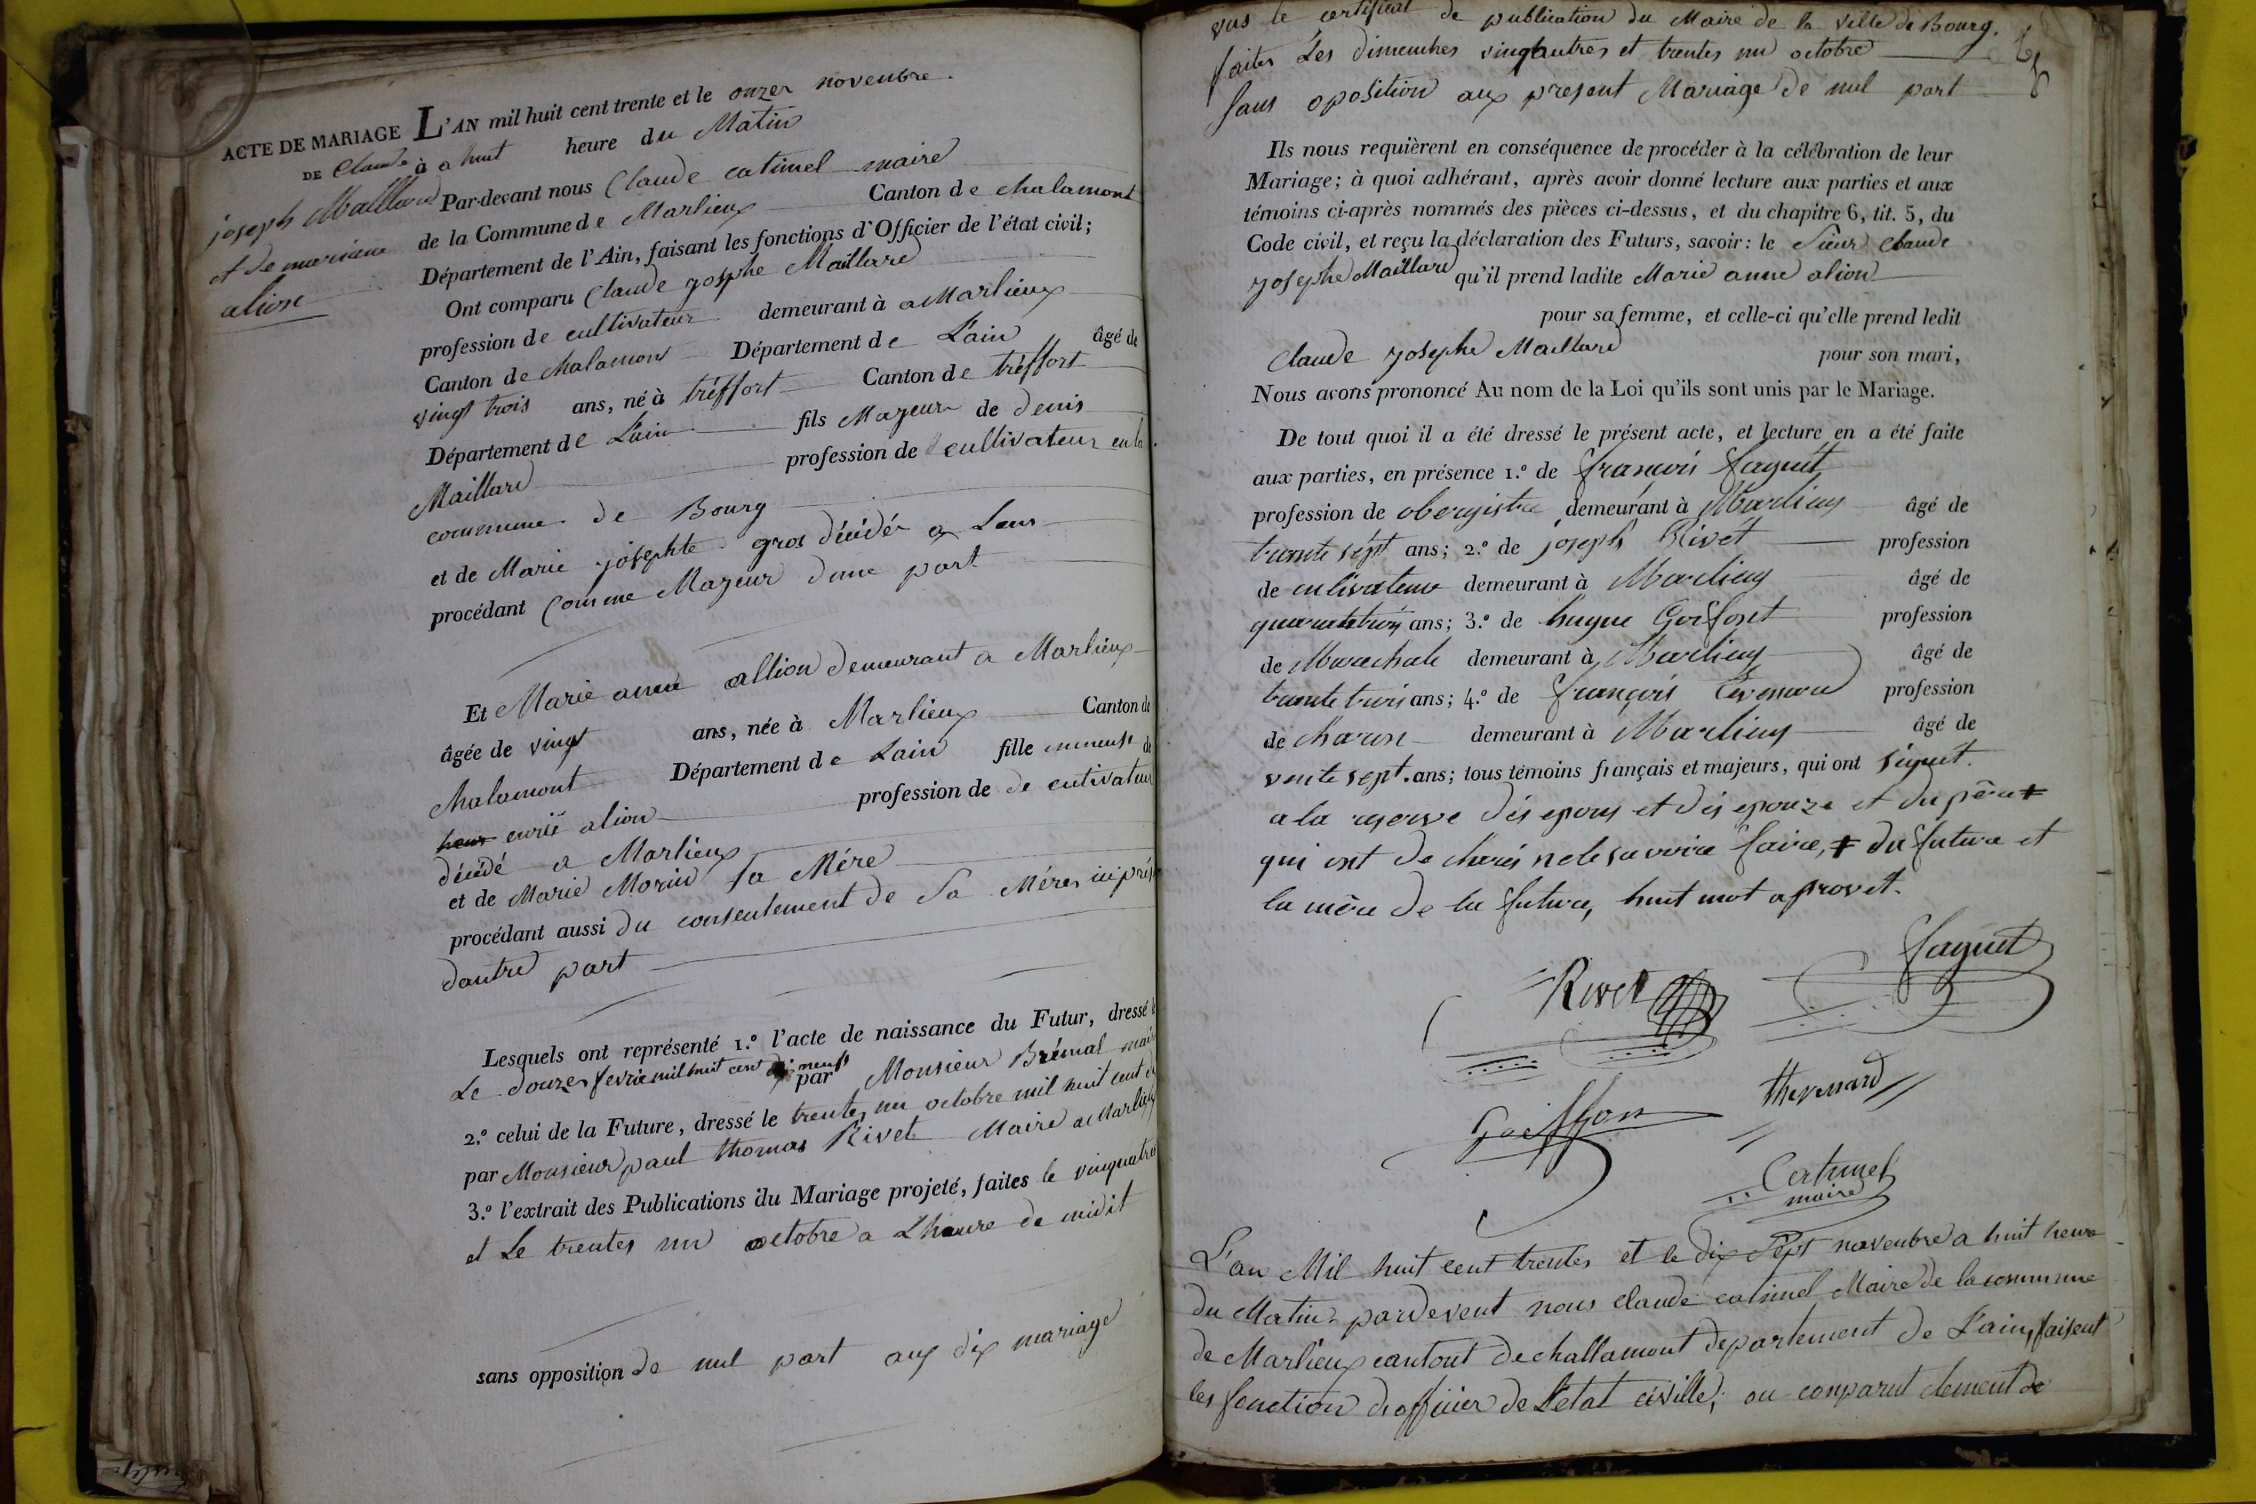 ACTE DE MARIAGE L'AN mil huit cent trente et le onzer novenbre.
DE Claude
joseph Maillard
et de marianne
alion
à a huit heure du Matin
Par-devant nous Claude catimel maire
de la Commune de Marlieux Canton de chalamont
Département de l'Ain, faisant les fonctions d'Officier de l'état civil;
Ont comparu Claude yosphe Maillard
profession de cultivateur demeurant à a Marlieux
Canton de chalamont Département de L'ain âgé de
vingt trois ans, né à tréffort Canton de tréffort
Département de L'ain fils Mayeur de denis
Maillard profession de cultivateur en la
commune de Bourg
et de Marie josephte gros décédé a Lent
procédant Comme Mayeur dune part
Et Marie anne allion demeurant a Marlieux
âgée de vingt ans, née à Marlieux Canton de
chalamont Département de Lain fille mineust de
enrié alion profession de de cutivateur
décédé a Marlieux
et de Marie Morin sa Mére
procédant aussi du consentement de Sa Mére
dautre part
Lesquels ont représenté 1.º l'acte de naissance du Futur, dressé
Le douzer fevrie mil huit cent par Monsieur Brémal maire
2.º celui de la Future, dressé le trentes un octobre mil huit cent
par Monsieur paul thomas Rivet Maire a Marlieux
3.º l'extrait des Publications du Mariage projeté, faites le vinquatre
et Le trentes un octobre a Lheure de midit
sans opposition de nul part aux dix mariage
vus le certificat de publication du Maire de la ville de Bourg.
faites Les dimenches vingtautres et trentes un octobre
Sans oposition aux present Mariage de nul part
Ils nous requièrent en conséquence de procéder à la célébration de leur
Mariage; à quoi adhérant, après avoir donné lecture aux parties et aux
témoins ci-après nommés des pièces ci-dessus, et du chapitre 6, tit. 5, du
Code civil, et reçu la déclaration des Futurs, savoir: le Sieur claude
yosephe Maillard qu'il prend ladite Marie anne alion
pour sa femme, et celle-ci qu'elle prend ledit
Claude yosephe Maillard pour son mari,
Nous avons prononcé Au nom de la Loi qu'ils sont unis par le Mariage.
De tout quoi il a été dressé le présent acte, et lecture en a été faite
aux parties, en présence 1.º de françois faguet
profession de obergistre demeurant à Marlieux âgé de
trante sept ans; 2.º de joseph Rivét profession
de cultivateur demeurant à Marlieux âgé de
quarantetrois ans; 3.º de hugue Goiffont profession
de Marechale demeurant à Marlieux âgé de
trante trois ans; 4.º de françois tevenard profession
de charon demeurant à Marlieux âgé de
vente sept ans; tous témoins français et majeurs, qui ont signet.
a la reserve dés epous et dés epouze et du père ‡
qui ont de charés ne le savoire faire, ‡ du futur et
la mère de la future, huit mot aprovet.
faguet
Rivet
thevenard
Goiffon
Catimel
maire
L'an Mil huit cent trentes et le dix Sept novenbre a huit heure
du Matin pardevent nous claude catimel Maire de la commune
de Marlieux cantont de challamont departement de L'ain, faisent
les fonction dofficier de L'etat civille; ou conparut clement de